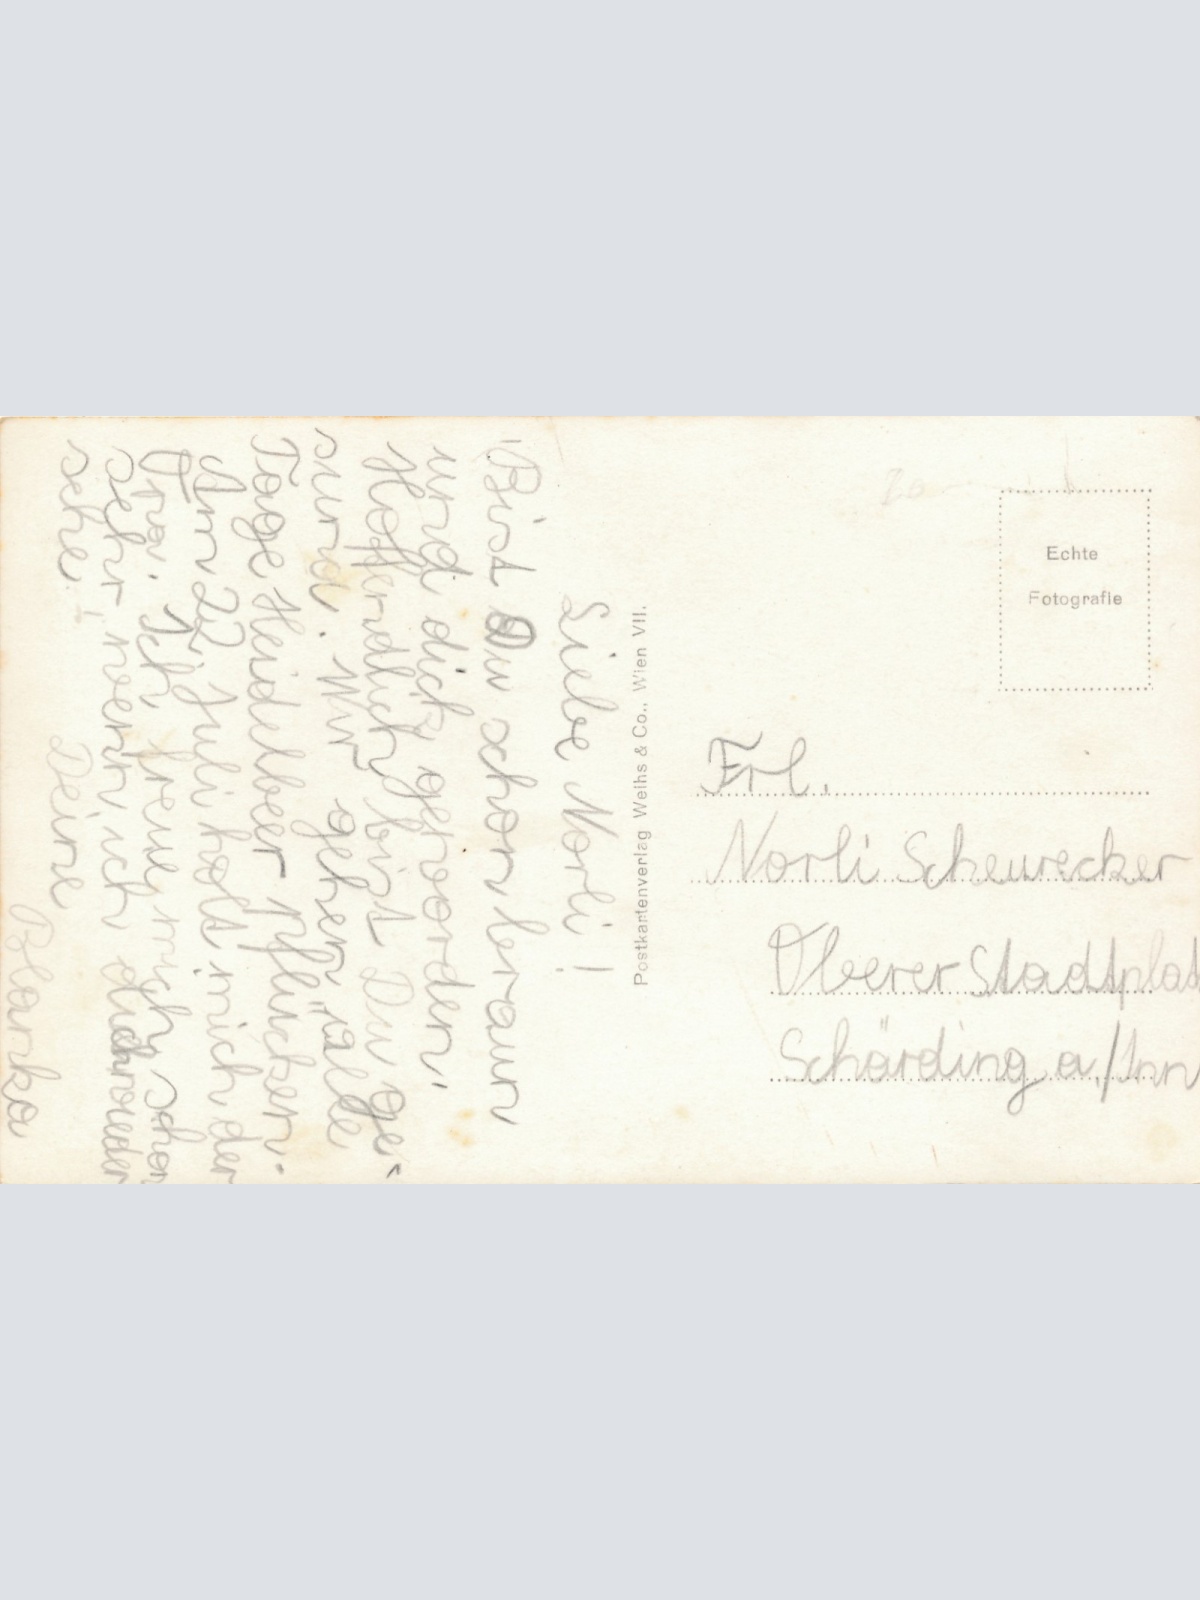 Liebe Norli!
Bist Du schon braun
und dick geworden.
Hoffendlich bist Du ge-
sund. Wir gehen alle
Tage Heidelbeer pflücken.
Am 22 Juli holt mich der
Ich freue mich schon
sehr, wenn ich dich wieder
sehe!
Deine
Blanka
Postkartenverlag Weihs & Co., Wien VII.
Echte
Fotografie
Frl.
Norli Scheurecker
Oberer Stadtplat
Schärding a/Inn